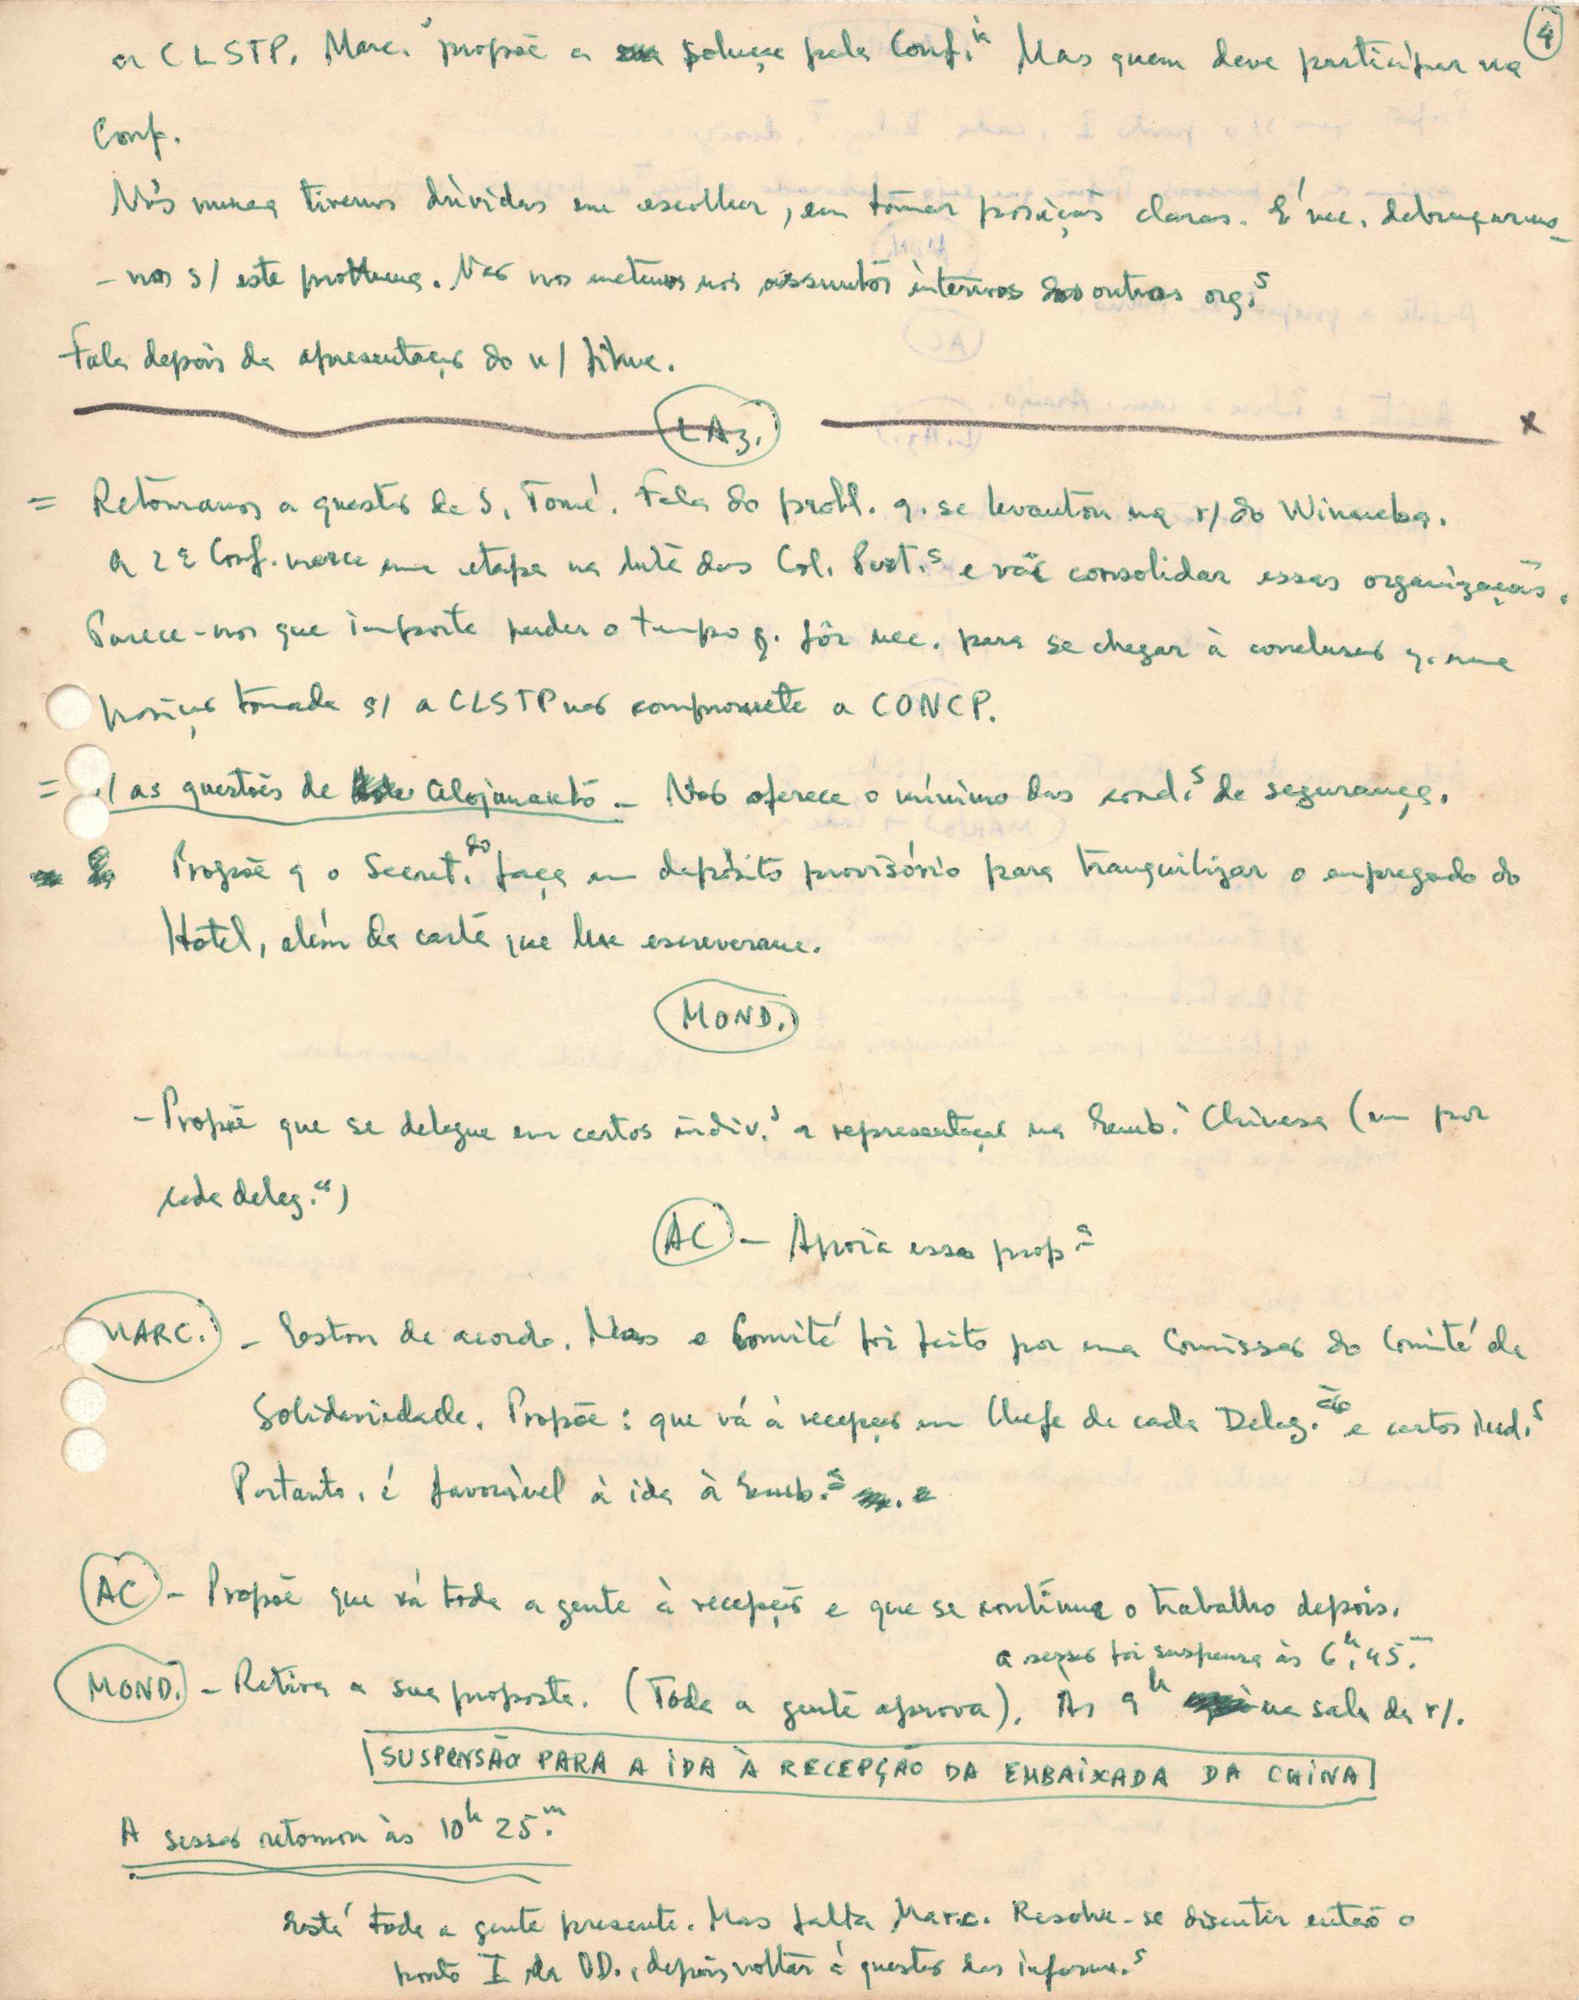 4
a CLSTP. Marc. propõe a solução pela Conf.ia Mas quem deve participar na
Conf.
Nós nunca tivemos dúvidas em escolher, em tomar posições claras. É nec. debruçarmo-
-nos s/ este problema. Não nos metemos nos assuntos internos das outras org.s
Fala depois da apresentação do n/ filme.
LAz.
x
= Retomamos a questão de S. Tomé. Fala do probl. q. se levantou na r/ do Winneba.
A 2ª Conf. marca uma etapa na luta das Col. Port.s e vai consolidar essas organizações.
Parece-nos que importa perder o tempo q. fôr nec. para se chegar à conclusão q. uma
posição tomada s/ a CLSTP não compromete a CONCP.
= s/ as questões de alojamento - Não oferece o mínimo das cond.s de segurança.
Propõe q o Secret.do faça um depósito provisório para tranquilizar o empregado do
Hotel, além da carta que lhe escreveram.
MOND.
- Propõe que se delegue em certos indiv.s a representação na Emb. Chinesa (um por
cada deleg.ão)
AC - Apoia essa prop.a
MARC. - Estou de acordo. Mas o Comité foi feito por uma Comissão do Comité de
Solidariedade. Propõe: que vá à recepção um Chefe de cada Deleg.ão e certos ind.s
Portanto, é favorável à ida à Emb.a
AC - Propõe que vá toda a gente à recepção e que se continue o trabalho depois.
a sessão foi suspensa às 6h.45.m
MOND. - Retira a sua proposta. (Toda a gente aprova). Às 9h na sala da r/.
SUSPENSÃO PARA A IDA À RECEPÇÃO DA EMBAIXADA DA CHINA
A sessão retomou às 10h 25.m
Está toda a gente presente. Mas falta Marc. Resolve-se discutir então o
ponto I da OD., depois voltar à questão das inform.s